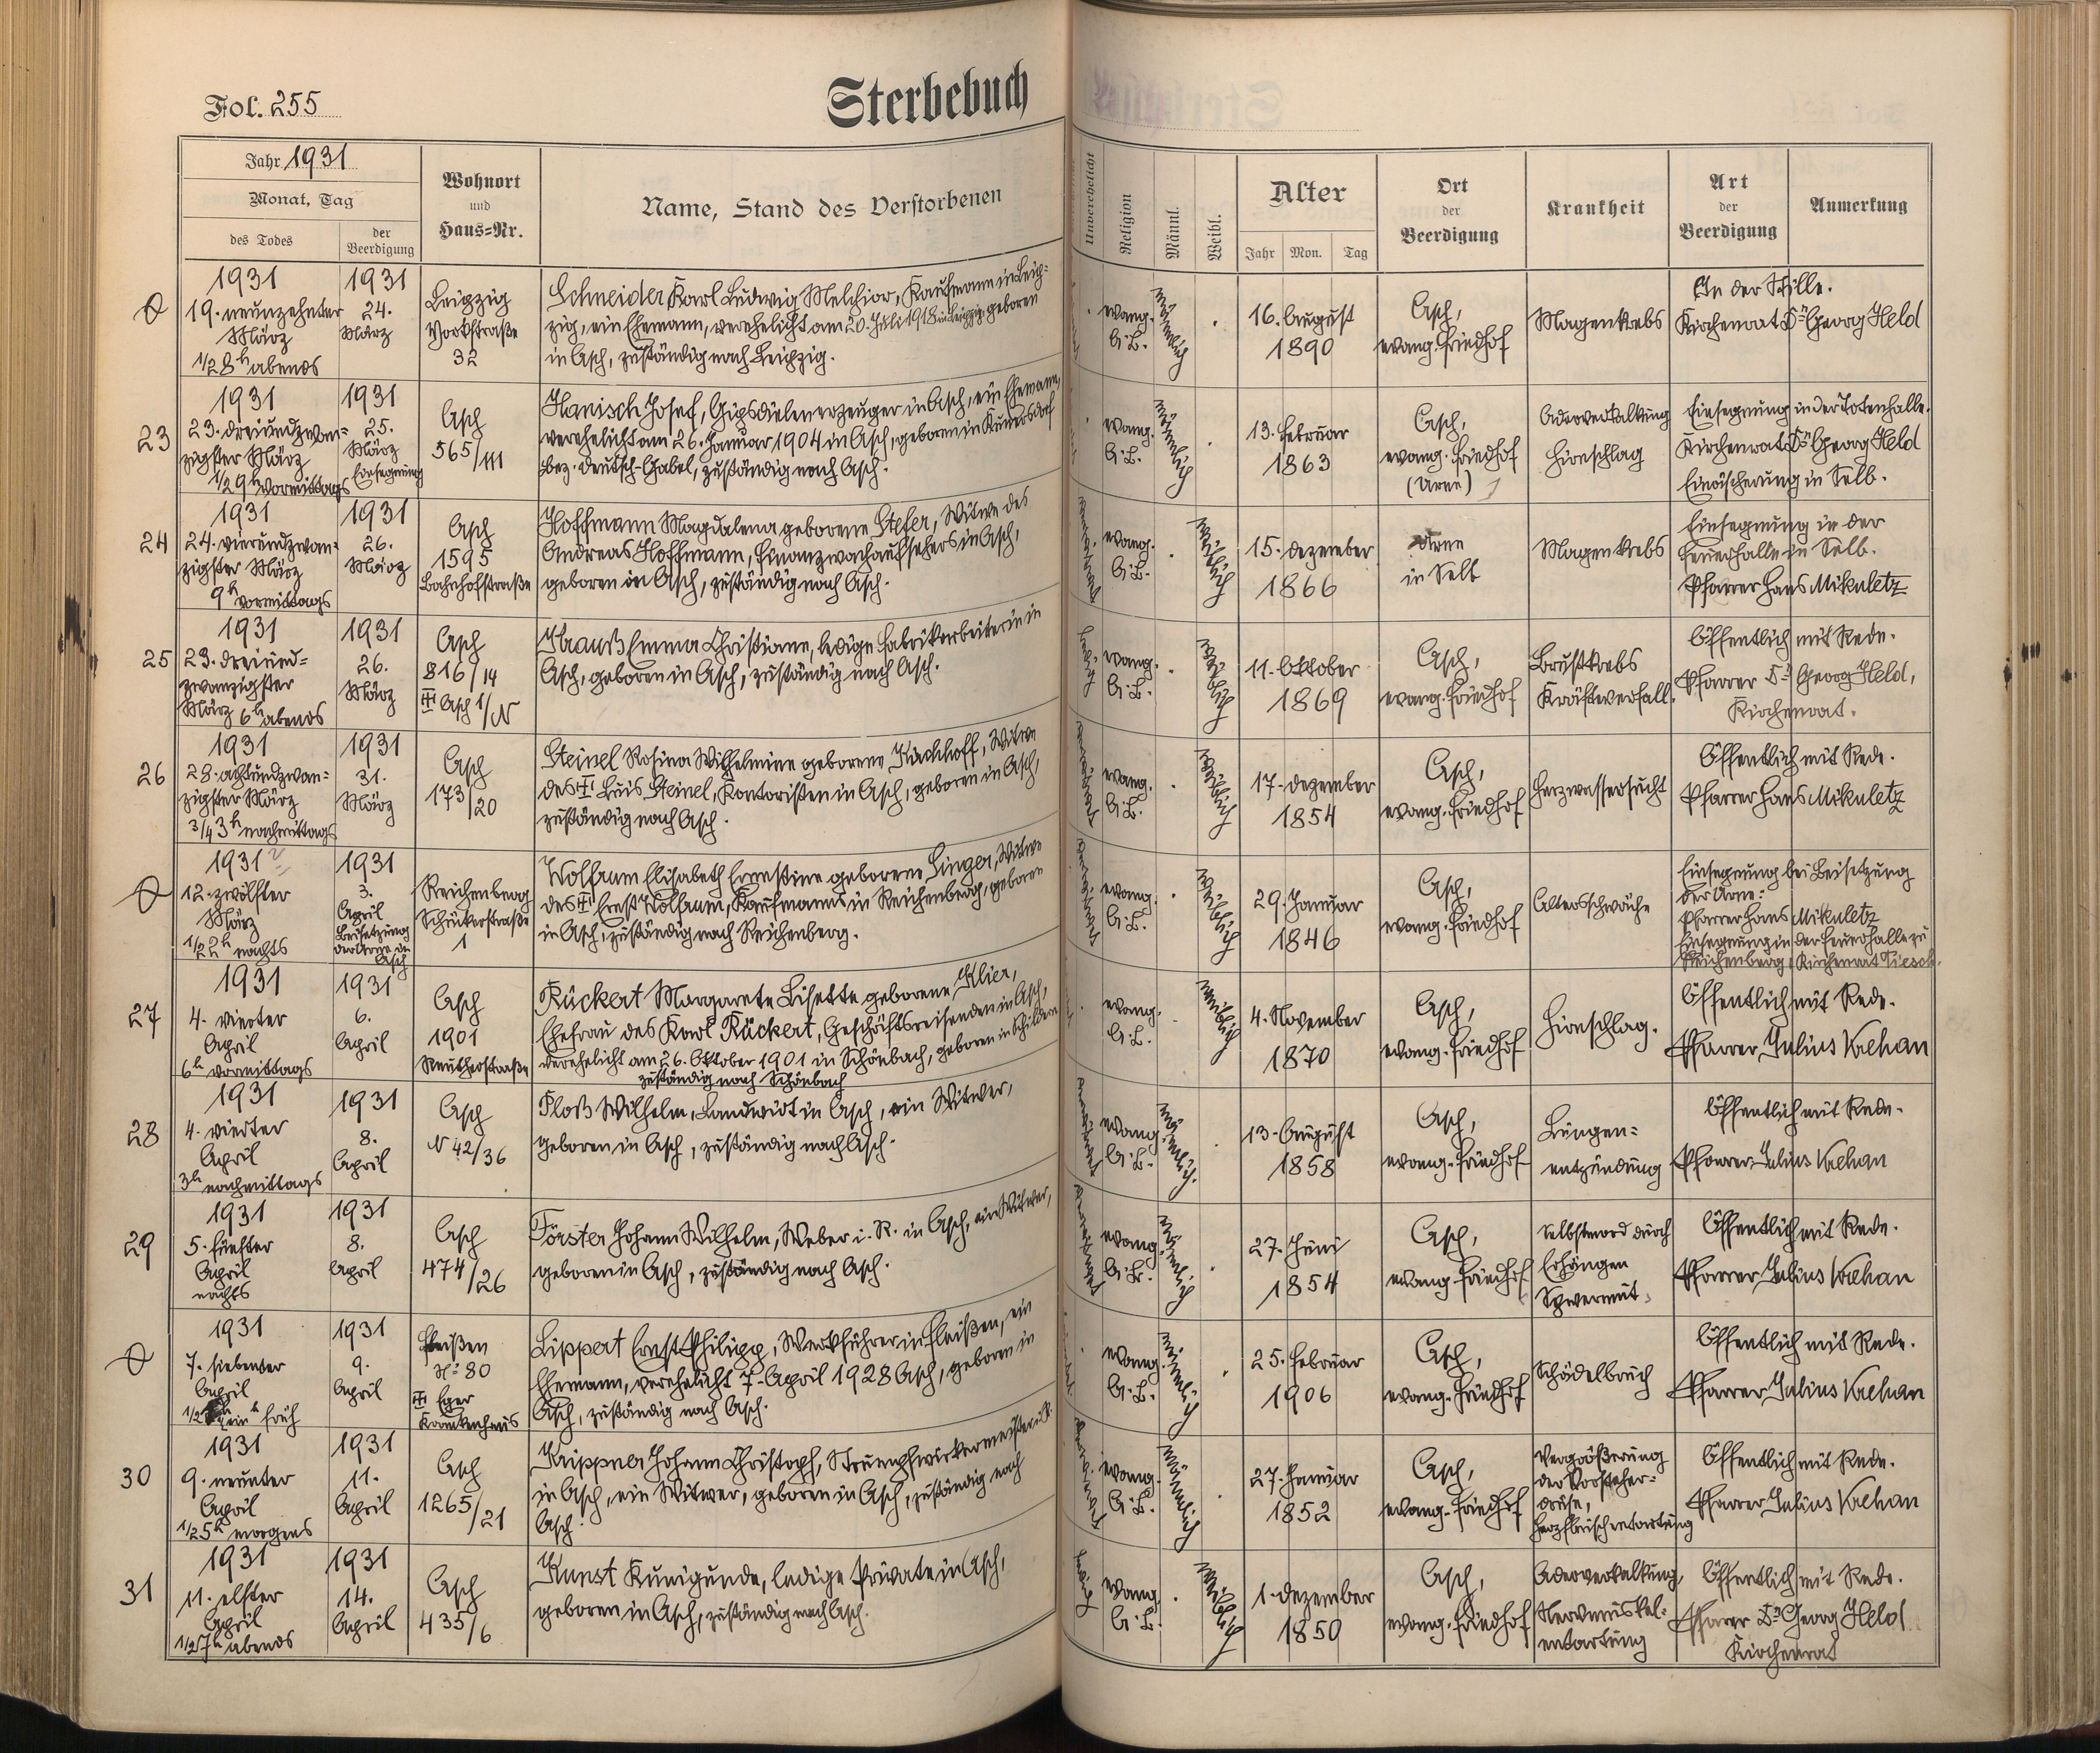 Fol. 255
Sterbebuch
Jahr 1931
Monat, Tag
des Todes
der Beerdigung
Wohnort
und
Haus=Nr.
Name, Stand des Verstorbenen
Unverehelicht
Religion
Männl.
Weibl.
Alter
Jahr
Mon.
Tag
Ort
der
Beerdigung
Krankheit
Art
der
Beerdigung
Anmerkung
1931
19. neunzehnter
März
1/2 8h abends
1931
24.
März
Leipzig
Yorkstraße
32
Schneider Karl Ludwig Melchior, Kaufmann in Leip=
zig, ein Ehemann, verehelicht am 20. Juli 1918 in Leipzig, geboren
in Asch, zuständig nach Leipzig.
evang.
A.B.
männlich
16. August
1890
Asch,
evang. Friedhof
Magenkrebs
In der Stille.
Kirchenrat Dr Georg Held
23
1931
23. dreiundzwan=
zigster März
1/2 9h vormittags
1931
25.
März
Einsegnung
Asch
565/III
Hanisch Josef, Gipsdielenerzeuger in Asch, ein Ehemann,
verehelicht am 26. Januar 1904 in Asch, geboren in Kunnersdorf
bez. Deutsch-Gabel, zuständig nach Asch.
evang.
A.B.
männlich
13. Februar
1863
Asch,
evang. Friedhof
(Urne)
Aderverkalkung
Hirnschlag
Einsegnung in der Totenhalle.
Kirchenrat Dr Georg Held
Einäscherung in Selb.
24
1931
24. vierundzwan=
zigster März
9h vormittags
1931
26.
März
Asch
1595
Bahnhofstraße
Hoffmann Magdalena geborene Stefer, Witwe des
Andreas Hoffmann, Finanzwachaufsehers in Asch,
geboren in Asch, zuständig nach Asch.
evang.
A.B.
weiblich
15. Dezember
1866
Urne
in Selb
Magenkrebs
Einsegnung in der
Feuerhalle in Selb.
Pfarrer Hans Mikuletz
25
1931
23. dreiund=
zwanzigster
März 6h abends
1931
26.
März
Asch
816/14
Asch 1/N
Krauß Emma Christiane, ledige Fabrikarbeiterin in
Asch, geboren in Asch, zuständig nach Asch.
ledig
evang.
A.B.
weiblich
11. Oktober
1869
Asch,
evang. Friedhof
Brustkrebs
Kräfteverfall.
Öffentlich mit Rede.
Pfarrer Dr Georg Held,
Kirchenrat.
26
1931
28. achtundzwan=
zigster März
3/4 3h nachmittags
1931
31.
März
Asch
173/20
Steinel Rosina Wilhelmine geborene Kirchhoff, Witwe
des Luis Steinel, Kontoristen in Asch, geboren in Asch,
zuständig nach Asch.
evang.
A.B.
weiblich
17. Dezember
1854
Asch,
evang. Friedhof
Herzwassersucht
Öffentlich mit Rede.
Pfarrer Hans Mikuletz
1931
12. zwölfter
März
1/2 2h nachts
1931
3.
April
Beisetzung
der Urne in
Asch
Reichenberg
Schückerstraße
1
Wolfrum Elisabeth Ernestine geborene Singer, Witwe
des Ernst Wolfrum, Kaufmanns in Reichenberg, geboren
in Asch, zuständig nach Reichenberg.
evang.
A.B.
weiblich
29. Januar
1846
Asch,
evang. Friedhof
Altersschwäche
Einsegnung bei Beisetzung
der Urne:
Pfarrer Hans Mikuletz
Einsegnung in der Feuerhalle zu
Reichenberg: Kirchenrat
27
1931
4. vierter
April
6h vormittags
1931
6.
April
Asch
1901
Reutherstraße
Rückert Margarete Lisette geborene Klier,
Ehefrau des Karl Rückert, Geschäftsreisenden in Asch,
verehelicht am 26. Oktober 1901 in Schönbach, geboren in Schildern
zuständig nach Schönbach
evang.
A.B.
weiblich
4. November
1870
Asch,
evang. Friedhof
Hirnschlag.
Öffentlich mit Rede.
Pfarrer Julius Krehan
28
1931
4. vierter
April
3h nachmittags
1931
8.
April
Asch
N 42/36
Ploß Wilhelm, Landwirt in Asch, ein Witwer,
geboren in Asch, zuständig nach Asch.
evang.
A.B.
männlich.
13. August
1858
Asch,
evang. Friedhof
Lungen=
entzündung
Öffentlich mit Rede.
Pfarrer Julius Krehan
29
1931
5. fünfter
April
nachts
1931
8.
April
Asch
474/26
Förster Johann Wilhelm, Weber i. R. in Asch, ein Witwer,
geboren in Asch, zuständig nach Asch.
evang.
A.B.
männlich
27. Juni
1854
Asch,
evang. Friedhof
Selbstmord durch
Erhängen
Öffentlich mit Rede.
Pfarrer Julius Krehan
1931
7. siebenter
April
früh
1931
9.
April
Fleißen
No 80
Eger
Krankenhaus
Lippert Ernst Philipp, Werkführer in Fleißen, ein
Ehemann, verehelicht 7. April 1928 Asch, geboren in
Asch, zuständig nach Asch.
evang.
A.B.
männlich
25. Februar
1906
Asch,
evang. Friedhof
Schädelbruch
Öffentlich mit Rede.
Pfarrer Julius Krehan
30
1931
9. neunter
April
1/2 5h morgens
1931
11.
April
Asch
1265/21
Krippner Johann Christoph, Strumpfwirkermeister i. R.
in Asch, ein Witwer, geboren in Asch, zuständig nach
Asch.
evang.
A.B.
männlich
27. Januar
1852
Asch,
evang. Friedhof
Vergrößerung
der Vorsteher=
drüse,
Herzfleischentartung
Öffentlich mit Rede.
Pfarrer Julius Krehan
31
1931
11. elfter
April
1/2 7h abends
1931
14.
April
Asch
435/6
Kunst Kunigunde, ledige Private in Asch,
geboren in Asch, zuständig nach Asch.
ledig
evang.
A.B.
weiblich
1. Dezember
1850
Asch,
evang. Friedhof
Aderverkalkung,
Herzmuskel=
entartung
Öffentlich mit Rede.
Pfarrer Dr Georg Held
Kirchenrat